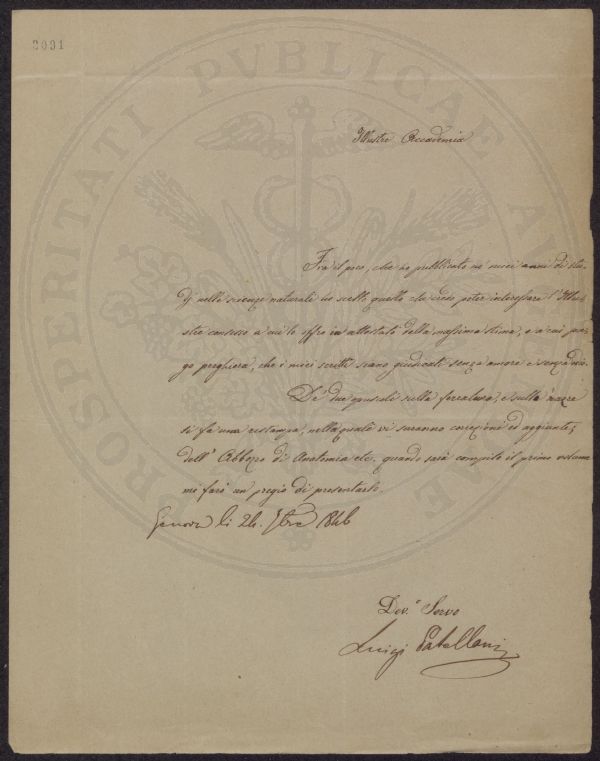 2091
PROSPERITATI PUBLICAE AUGENDAE
Illustre Accademia
Fra il poco, che ho pubblicato ne' miei anni di stu-
dj nelle scienze naturali ho scelto quello che credo poter interessare l'Illu-
stre consesso a cui lo offro in attestato della massima stima, e a cui por-
go preghiera, che i miei scritti siano giudicati senza amore e senza odio.
De' due opuscoli sulla ferratura, e sulla
si fa una ristampa, nella quale vi saranno correzioni ed aggiunte;
dell'Abbozzo di Anatomia etc. quando sarà compito il primo volume
mi farò un pregio di presentarlo.
Genova li 24. 7bre 1846
Dev.° Servo
Luigi Patellani